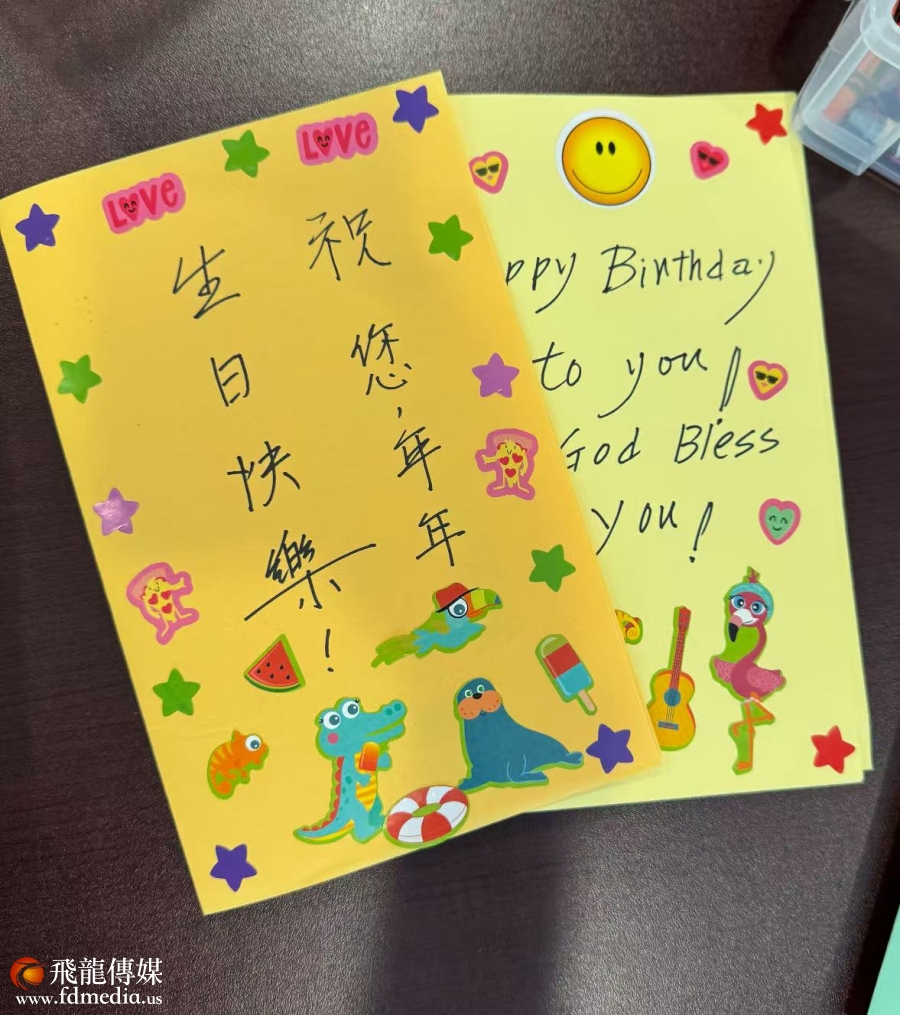 LOVE
LOVE
祝您,年年
生日快樂!
ppy Birthday
to you!
God Bless
you!
飛龍傳媒
www.fdmedia.us